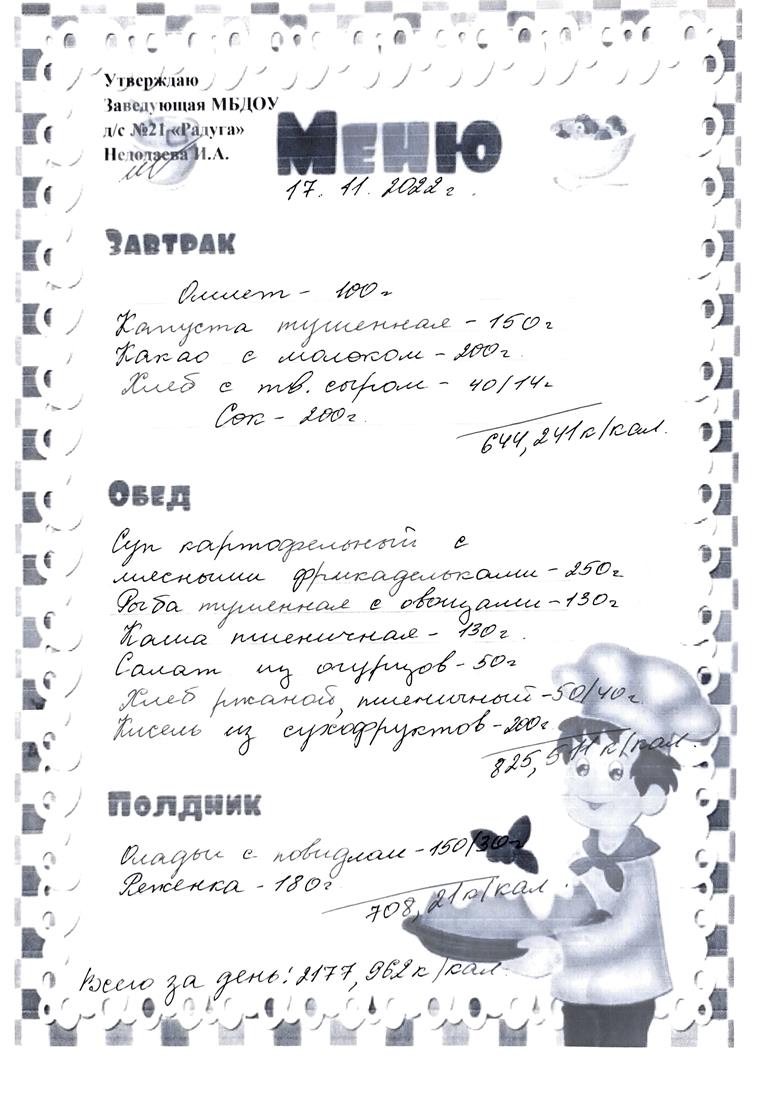 Утверждаю
Заведующая МБДОУ
д/с №21 «Радуга»
Недодаева И.А.
Меню
17. 11. 2022г.
Завтрак
Омлет - 100г
Капуста тушенная - 150г
Какао с молоком - 200г.
Хлеб с тв. сыром - 40/14г
Сок - 200г.
644,241к/кал.
Обед
Суп картофельный с
мясными фрикадельками - 250г
Рыба тушенная с овощами - 130г
Каша пшеничная - 130г.
Салат из огурцов - 50г
Хлеб ржаной, пшеничный - 50/40г.
Кисель из сухофруктов - 200г
825,511к/кал.
Полдник
Оладьи с повидлом - 150/30г
Ряженка - 180г
708,21к/кал.
Всего за день: 2177,962к/кал.